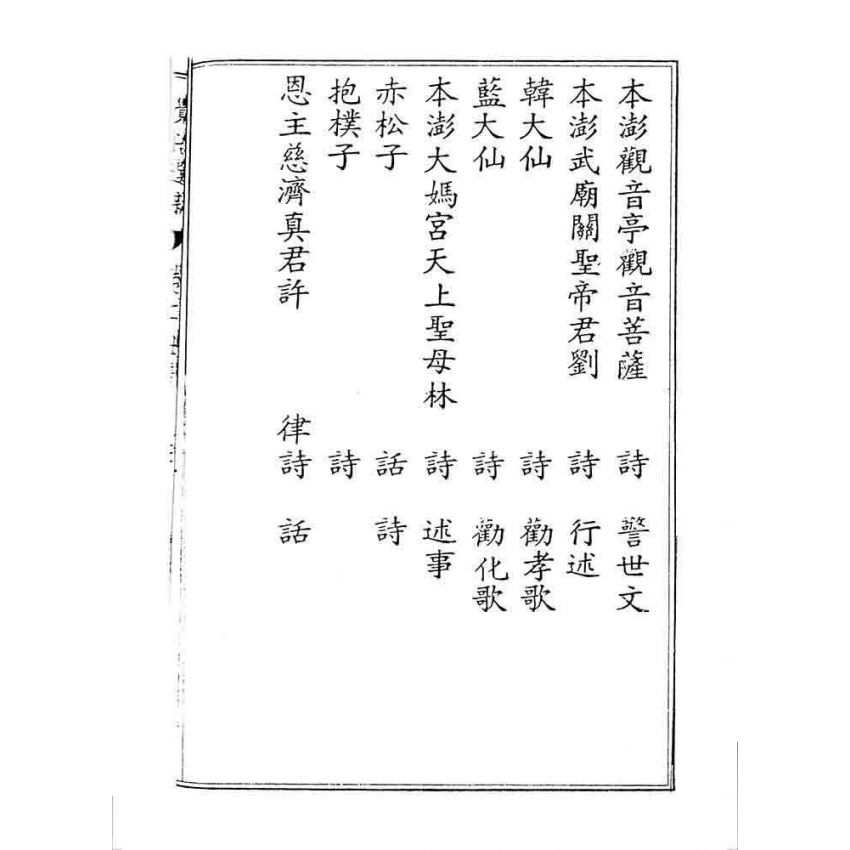 本澎觀音亭觀音菩薩 詩 警世文
本澎武廟關聖帝君劉 詩 行述
韓大仙 詩 勸孝歌
藍大仙 詩 勸化歌
本澎大媽宮天上聖母林 詩 述事
赤松子 話 詩
抱樸子 詩
恩主慈濟真君許 律詩 話